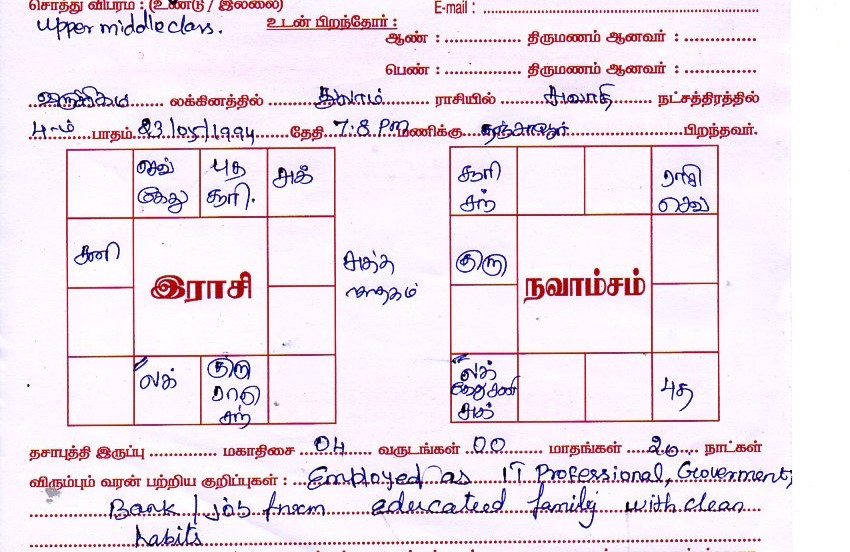 சொத்து விபரம் : (உண்டு / இல்லை)
E-mail :
upper middle class.
உடன் பிறந்தோர் :
ஆண் : திருமணம் ஆனவர் :
பெண் : திருமணம் ஆனவர் :
லக்கினத்தில் துலாம் ராசியில் சுவாதி நட்சத்திரத்தில்
4-ம் பாதம் 23/05/1994 தேதி 7:8 PM மணிக்கு தஞ்சாவூர் பிறந்தவர்.
செவ் புத சுக் சூரி ராகு
கேது சூரி. சந் செவ்
சனி குரு
இராசி நவாம்சம்
லக் குரு லக் புத
ராகு கேது சனி
சந் சுக்
தசாபுத்தி இருப்பு மகாதிசை 04 வருடங்கள் 00 மாதங்கள் 20 நாட்கள்
விரும்பும் வரன் பற்றிய குறிப்புகள் : Employed as IT Professional, Goverment,
Bank / job from educated family with clean
habits